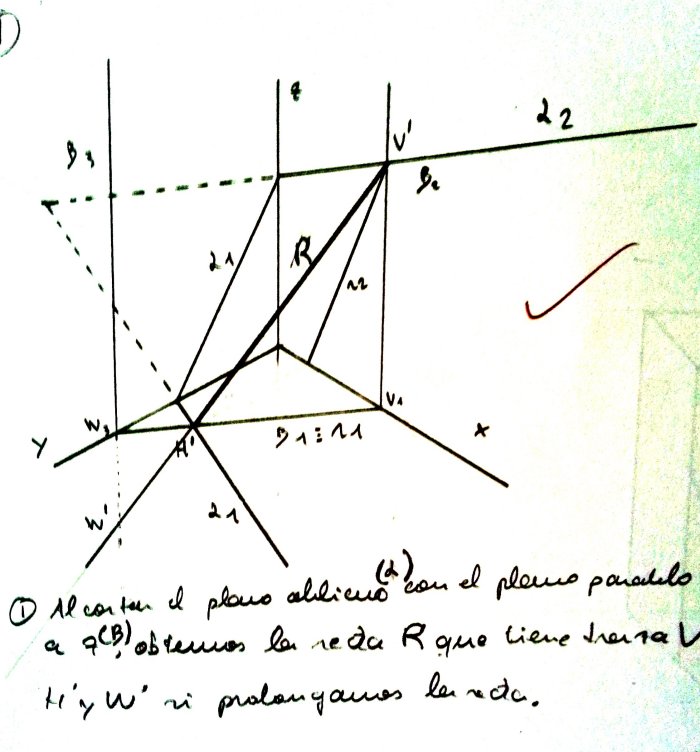 1)
z
α2
V'
B3
B2
α1
R
r2
W3
V1
X
Y
H'
B1≡r1
W'
α1
① Al cortar el plano oblicuo (α) con el plano paralelo
a z (B), obtenemos la recta R que tiene traza V
H' y W' si prolongamos la recta.